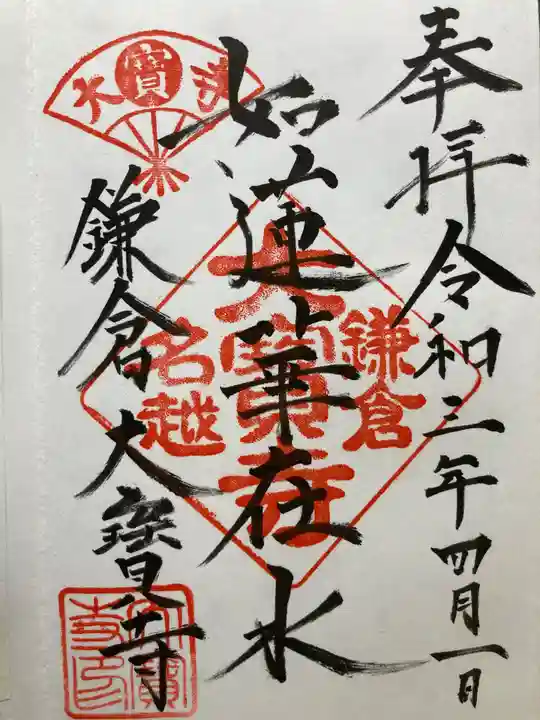 奉拝 令和三年四月一日
如蓮華在水
鎌倉 大寶寺
鎌倉
大寶寺
名越